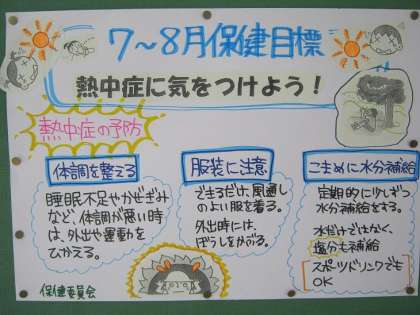 7～8月保健目標
熱中症に気をつけよう！
熱中症の予防
体調を整える
睡眠不足やかぜぎみ
など、体調が悪い時
は、外出や運動を
ひかえる。
服装に注意
できるだけ、風通し
のよい服を着る。
外出時には、
ぼうしをかぶる。
こまめに水分補給
定期的に少しずつ
水分補給をする。
水だけではなく、
塩分も補給
スポーツドリンクでも
OK
保健委員会